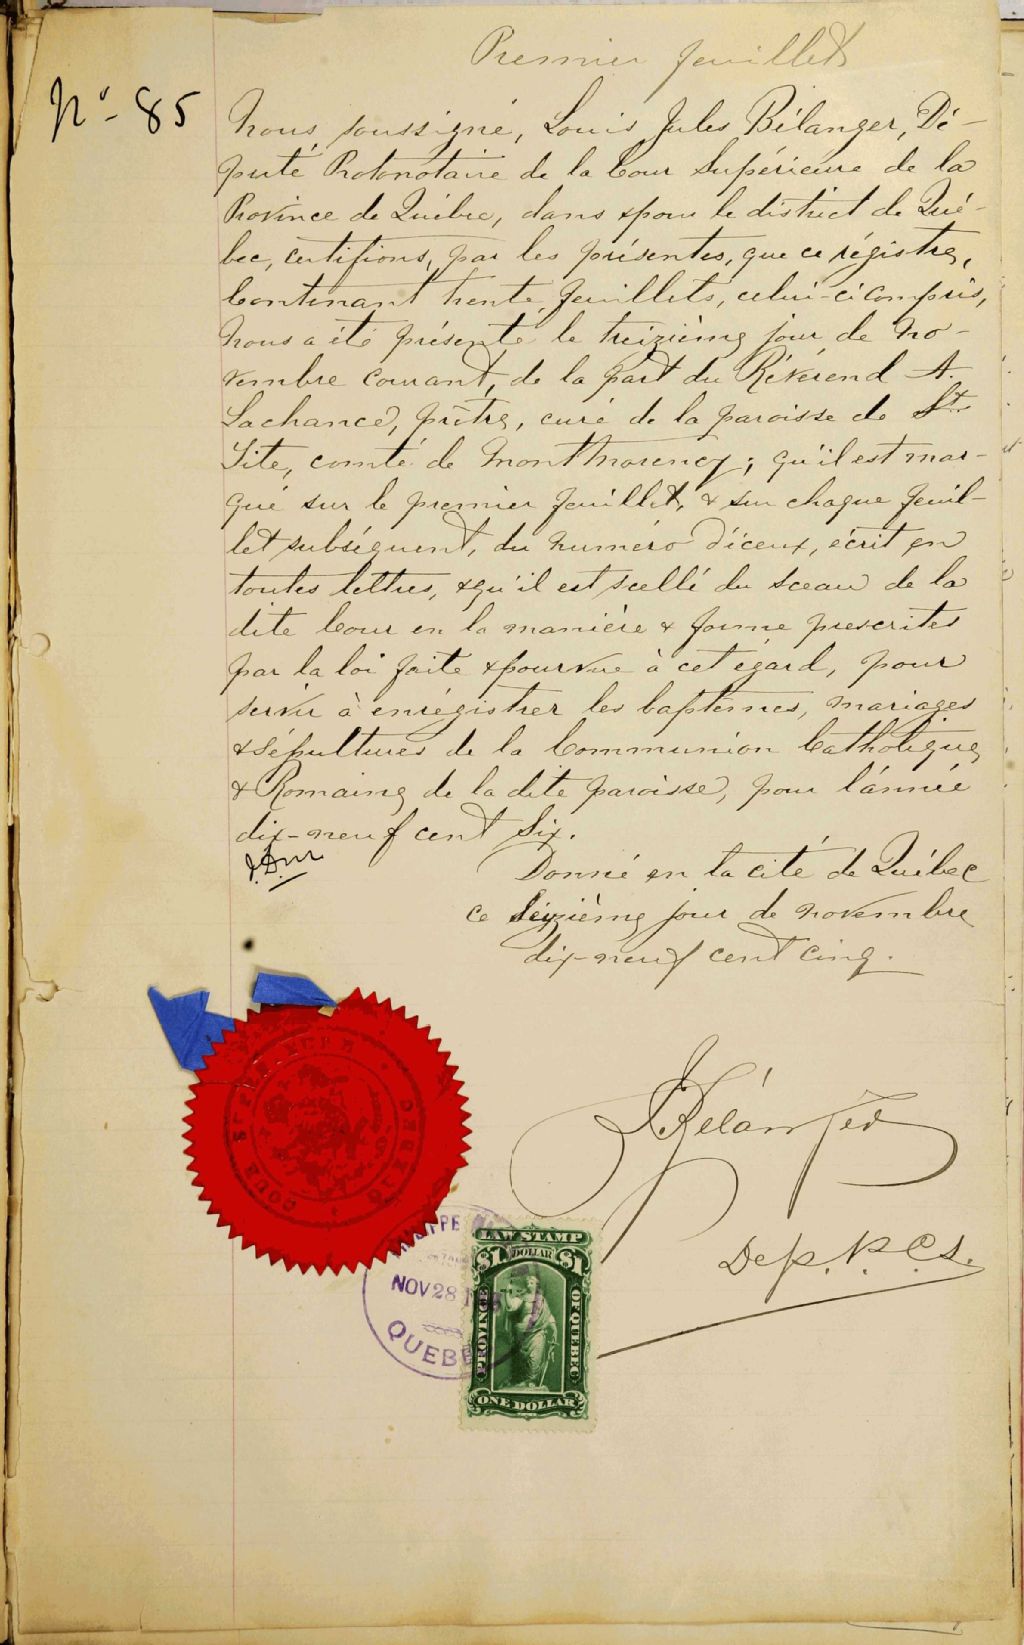 Premier feuillet
No - 85
Nous soussigné, Louis Jules Bélanger, Dé-
puté Protonotaire de la Cour Supérieure de la
Province de Québec, dans & pour le district de Qué-
bec, certifions, par les présentes, que ce régistre,
Contenant trente feuillets, celui-ci compris,
nous a été présenté le treizième jour de no-
vembre courant, de la part du Révérend A.
Lachance, prêtre, curé de la paroisse de St.
Tite, comté de Montmorency; qu'il est mar-
qué sur le premier feuillet, & sur chaque feuil-
let subséquent, du numéro d'iceux, écrit en
toutes lettres, & qu'il est scellé du sceau de la
dite Cour en la manière & forme prescrites
par la loi faite & pourvue à cet égard, pour
servir à enrégistrer les baptêmes, mariages
& sépultures de la Communion Catholique
& Romaine de la dite paroisse, pour l'année
dix-neuf cent six.
Donné en la cité de Québec
ce seizième jour de novembre
dix-neuf cent cinq.
COUR SUPERIEURE
QUEBEC
LJBélanger
Dep. P. C. S.
LAW STAMP
$1 DOLLAR $1
PROVINCE OF QUEBEC
ONE DOLLAR
NOV 28
QUEBEC